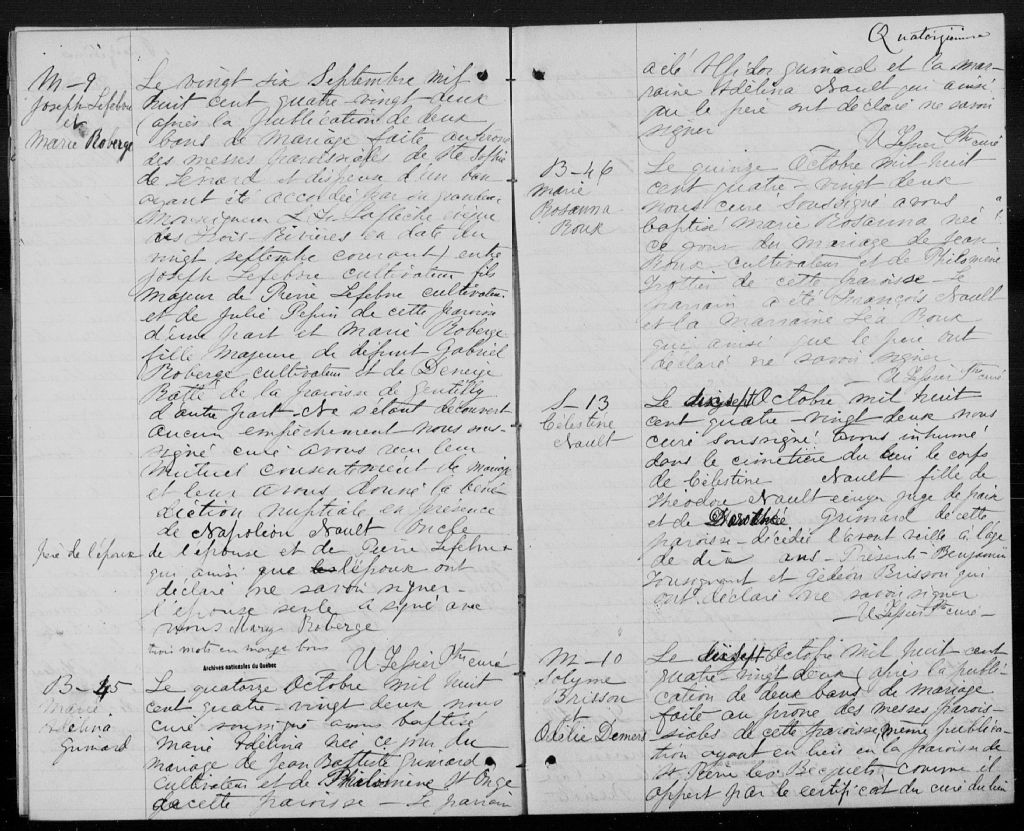 M-9
Joseph Lefebvre
et
Marie Roberge
Le vingt six Septembre mil
huit cent quatre-vingt deux
(après la publication de deux
bans de mariage faite au prone
des messes paroissiales de Ste Sophie
de Lévrard et dispense d'un ban
ayant été accordée par sa grandeur
Monseigneur L. F. Lafleche évêque
des Trois-Rivières en date du
vingt septembre courant) entre
Joseph Lefebvre cultivateur fils
majeur de Pierre Lefebvre cultivateur
et de Julie Pepin de cette paroisse
d'une part et Marie Roberge
fille majeure de défunt Gabriel
Roberge cultivateur et de
de la paroisse de Gentilly
d'autre part - Ne s'étant découvert
aucun empêchement nous sous-
signé curé avons reçu leur
mutuel consentement de mariage
et leur avons donné la béné
diction nuptiale en présence
de Napoléon Nault Oncle
de l'épouse et de Pierre Lefebvre +
père de l'époux
qui ainsi que l'époux ont
déclaré ne savoir signer -
l'épouse seule a signé avec
nous Mary Roberge
trois mots en marge bons
U Tessier Ptre curé
Archives nationales du Québec
B-45
Marie
Adélina
Grimard
Le quatorze Octobre mil huit
cent quatre-vingt deux nous
curé soussigné avons baptisé
Marie Adélina née ce jour du
mariage de Jean Baptiste Grimard
Cultivateur et de Philomène St Onge
de cette paroisse - Le parrain
Quatorzieme
a été Alfidor Grimard et la mar-
raine Adélina Nault qui ainsi
que le père ont déclaré ne savoir
signer
U Tessier Ptre curé
B-46
Marie
Rosanna
Roux
Le quinze Octobre mil huit
cent quatre-vingt deux
nous curé soussigné avons
baptisé Marie Rosanna née
ce jour du mariage de Jean
Roux cultivateur et de Philomène
Trottier de cette paroisse - Le
parrain a été François Nault
et la marraine Léa Roux
qui ainsi que le père ont
déclaré ne savoir signer
U Tessier Ptre curé
S-13
Célestine
Nault
Le dix sept Octobre mil huit
cent quatre-vingt deux nous
curé soussigné avons inhumé
dans le cimetière du lieu le corps
de Célestine Nault fille de
Théodore Nault écuyer juge de paix
et de Dorothée Grimard de cette
paroisse - décédée l'avant veille à l'âge
de dix ans - Présents - Benjamin
Tousignant et Gédéon Brisson qui
ont déclaré ne savoir signer
U Tessier Ptre curé -
M-10
Solyme
Brisson
et
Odélie Demers
Le dix sept Octobre mil huit cent
quatre-vingt deux (après la publi-
cation de deux bans de mariage
faite au prone des messes parois-
siales de cette paroisse, même publica-
tion ayant eu lieu en la paroisse de
St Pierre les Becquets comme il
appert par le certificat du curé du lieu